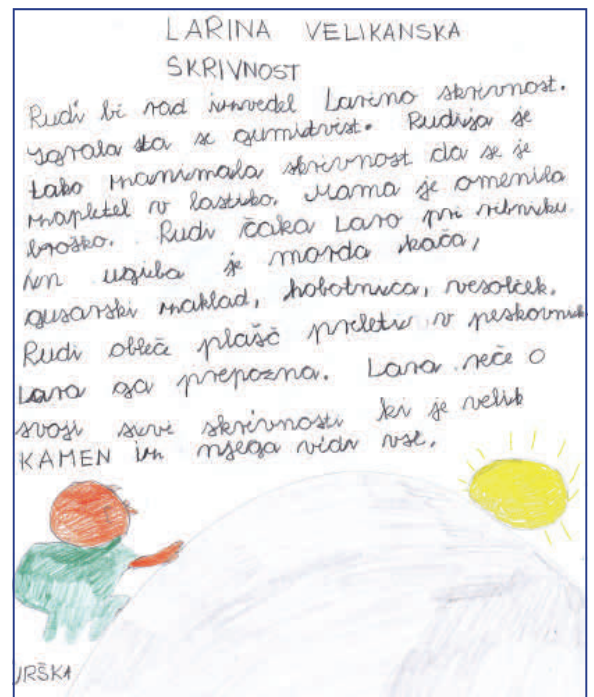 LARINA VELIKANSKA
SKRIVNOST
Rudi bi rad izvedel Larino skrivnost.
Igrala sta se gumitvist. Rudija je
tako zanimala skrivnost da se je
zapletel v lastiko. Mama je omenila
broško. Rudi čaka Laro pri ribniku
in ugiba je morda kača,
gusarski zaklad, hobotnica, vesolček.
Rudi obleče plašč preleti v peskovnik
Lara ga prepozna. Lara reče o
svoji sivi skrivnosti ki je velik
KAMEN in njega vidi vse.
URŠKA